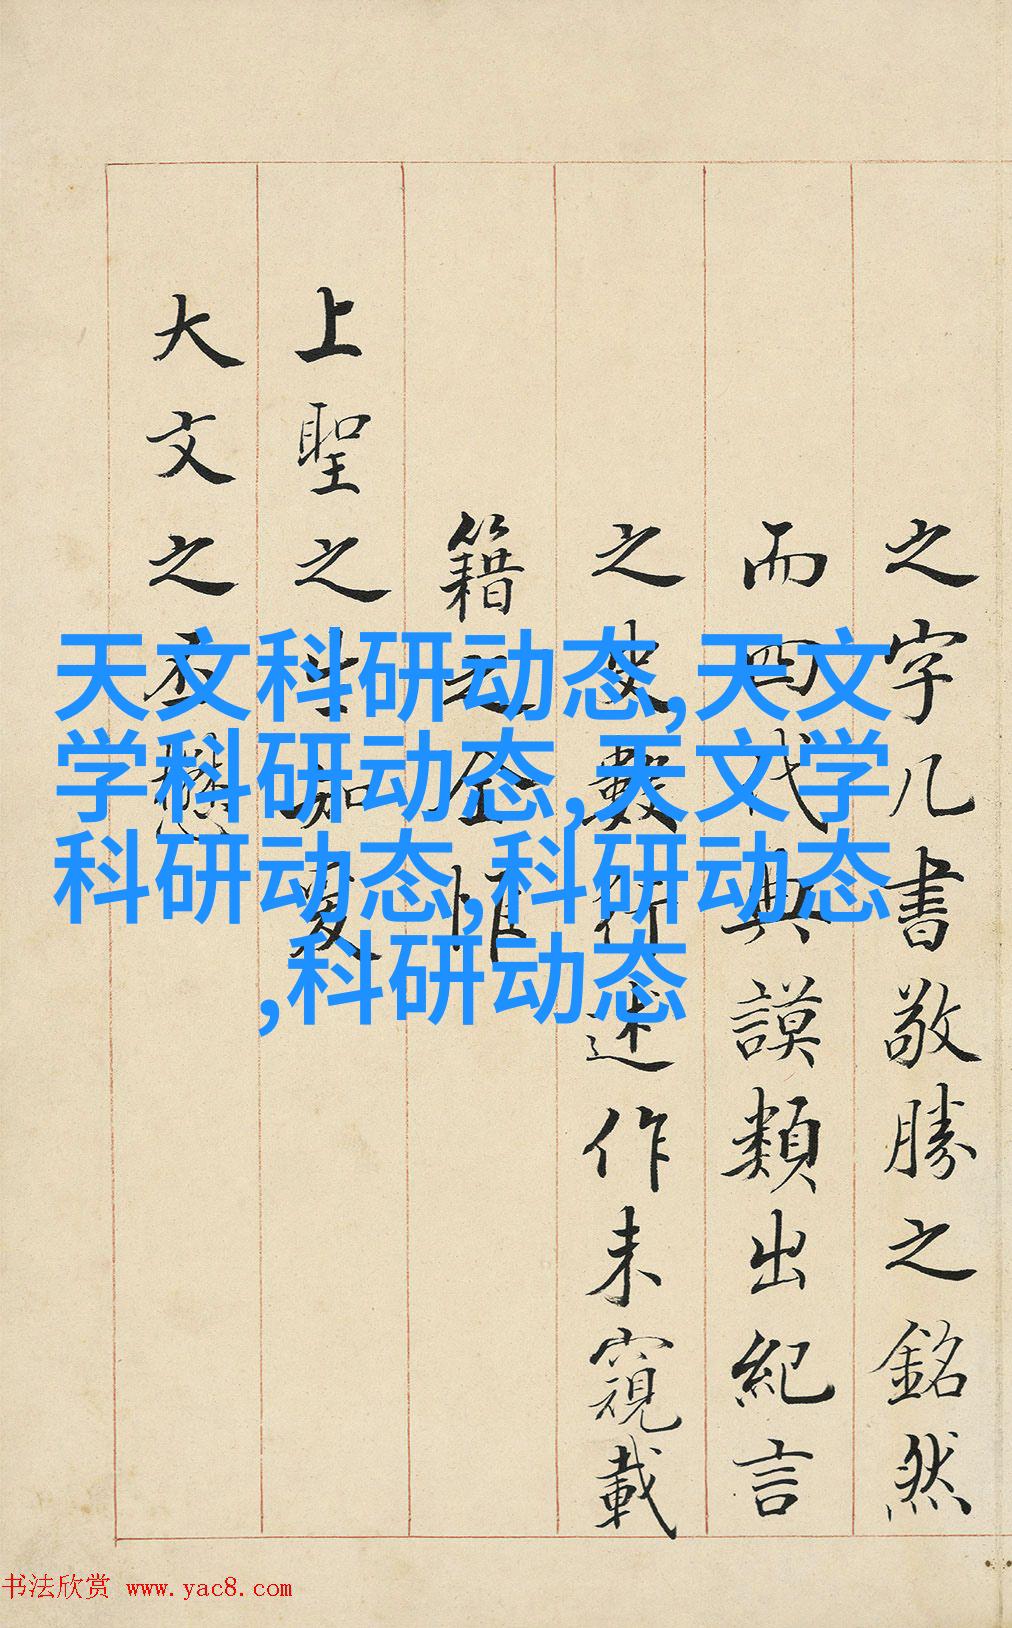 之字几書敬勝之銘然
而四代典謨類出紀言
之史數行述作未窺載
籍之全惟
上聖之生知夏
大文之丕
天文科研动态,天文
学科研动态,天文学
科研动态,科研动态
,科研动态
书法欣赏 www.yac8.com